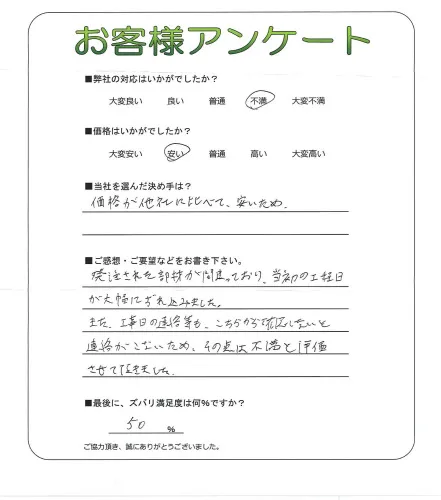 お客様アンケート
■弊社の対応はいかがでしたか？
大変良い 良い 普通 不満 大変不満
■価格はいかがでしたか？
大変安い 安い 普通 高い 大変高い
■当社を選んだ決め手は？
価格が他社に比べて、安いため.
■ご感想・ご要望などをお書き下さい。
発注された部材が間違っており、当初の工程日
が大幅にずれ込みました。
また、工事日の連絡等も、こちらから確認しないと
連絡がこないため、その点は不満と評価
させて頂きました.
■最後に、ズバリ満足度は何%ですか？
50 %
ご協力頂き、誠にありがとうございました。